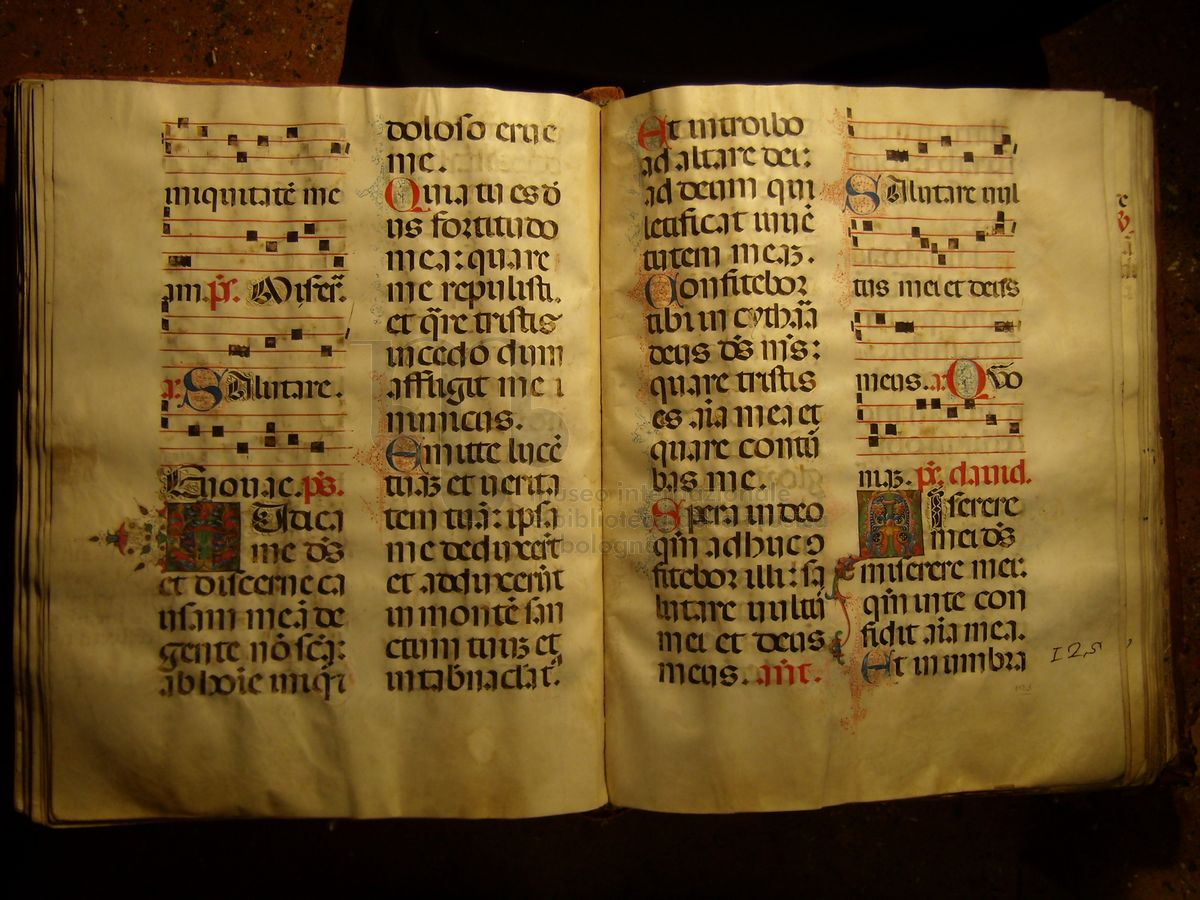 iniquitatē me
am. ps̄. Miser̄.
a: Salutare.
Euouae. ps.
Iudica
me dn̄s
et discerne ca
usam meā de
gente nō sc̄a:
ab hoīe iniq̄
doloso erue
me.
Quia tu es d̄
us fortitudo
mea: quare
me repulisti.
et q̄re tristis
incedo dum
affligit me i
nimicus.
Emitte lucē
tuaꝫ et uerita
tem tuā: ipsa
me deduxert̄
et adduxerūt
in montē san
ctum tuuꝫ et
in tabnacla t.
Et introibo
ad altare dei:
ad deum qui
letificat iuuē
tutem meaꝫ.
Confitebor
tibi in cythara
deus ds̄ ms̄:
quare tristis
es aīa mea et
quare contu
bas me.
Spera in deo
qm̄ adhuc ↄ
fitebor illi: sa
lutare uultu
mei et deus
meus. ant̄.
Salutare uul
tus mei et deus
meus. a: Quo
niaꝫ. ps̄. dauid.
Miserere
mei ds̄
miserere mei:
qm̄ in te con
fidit aīa mea.
Et in umbra
125
museo internazionale
biblioteca
bologna